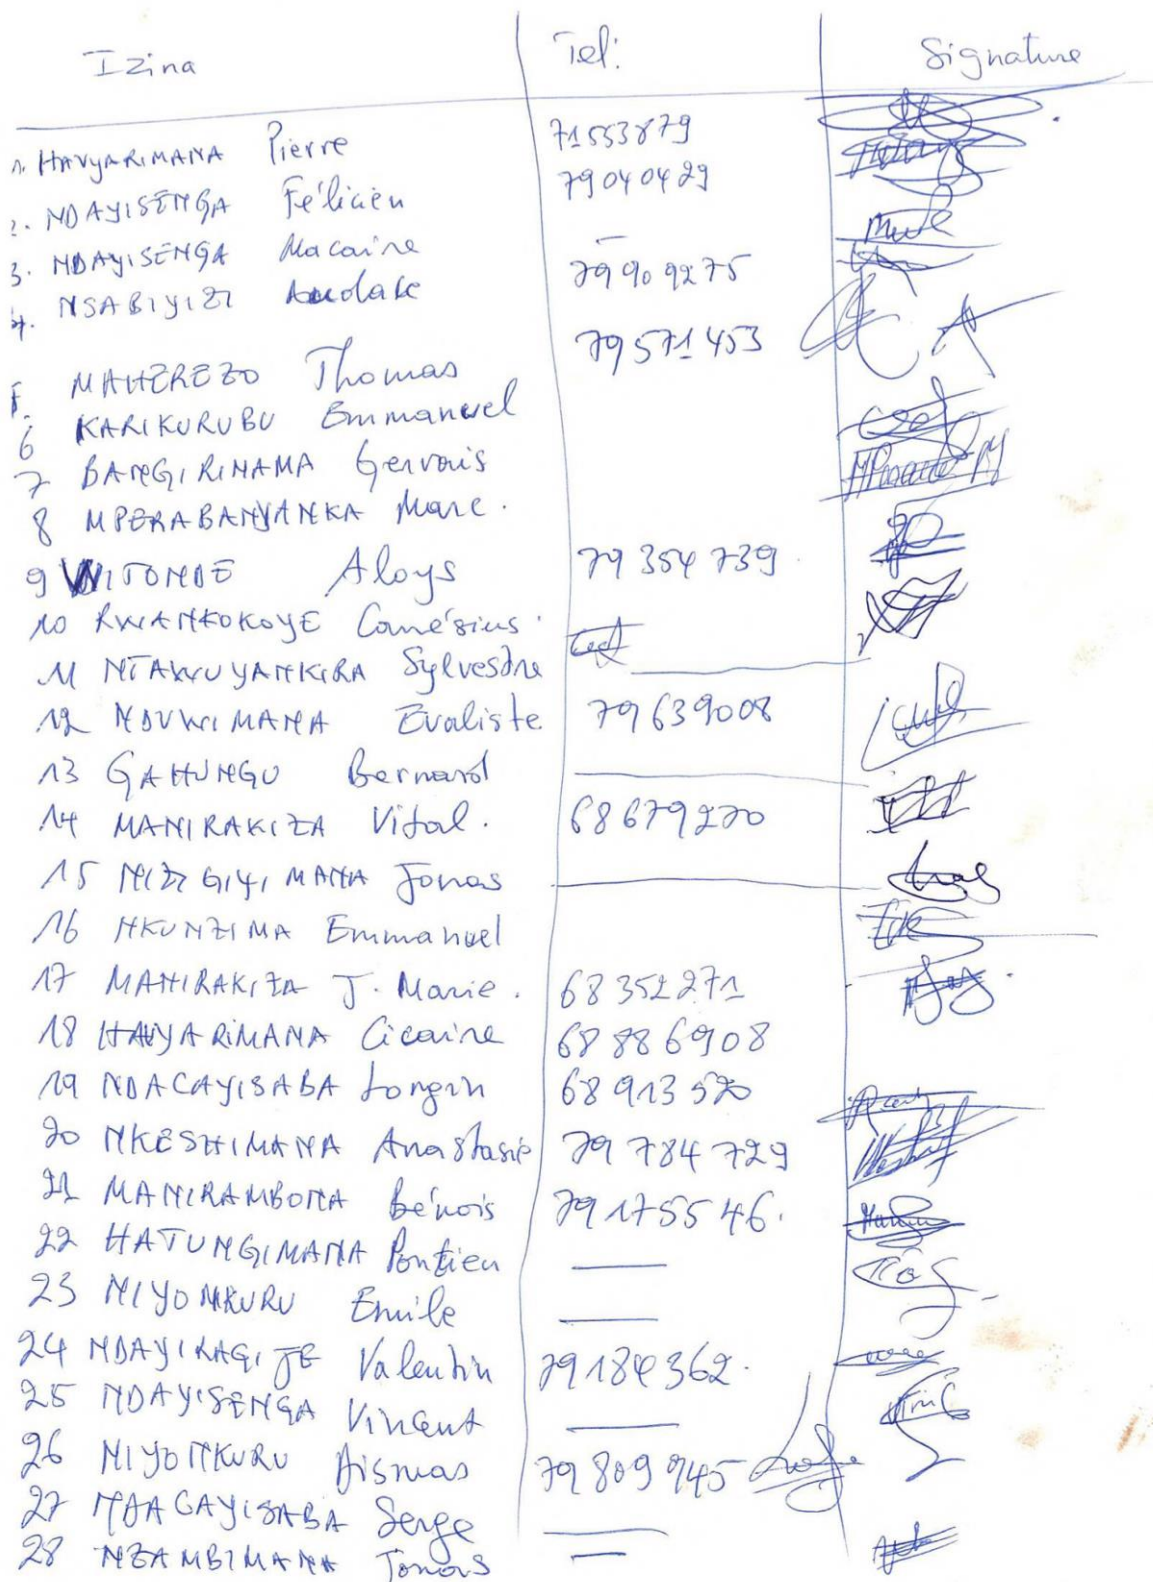 Izina Tel: Signature
1. HAVYARIMANA Pierre 71553879
2. NDAYISENGA Félicien 79040429
3. NDAYISENGA Macaire –
4. NSABIYIZI 79909275
5. MAHEREZO Thomas 79571453
6 KARIKURUBU Emmanuel
7 BANGIRINAMA Gervais
8 MPERABANYANKA Marc.
9 WITONDE Aloys 79354739
10 RWANKOKOYE Canésius
11 NTAWUYANKIRA Sylvestre
12 NDUWIMANA Evaliste 79639008
13 GAHUNGU Bernard
14 MANIRAKIZA Vital. 68679270
15 NIZIGIYIMANA Jonas
16 NKUNZIMA Emmanuel
17 MANIRAKIZA J. Marie. 68352271
18 HAVYARIMANA Cicaire 68886908
19 NDACAYISABA Longin 68913520
20 NKESHIMANA Anastasie 79784729
21 MANIRAMBONA Bénois 79175546.
22 HATUNGIMANA Pontien —
23 NIYONKURU Emile —
24 NDAYIRAGIJE Valentin 79184362.
25 NDAYISENGA Vincent —
26 NIYONKURU Dismas 79809945
27 NDACAYISABA Serge —
28 NZAMBIMANA Jonas —